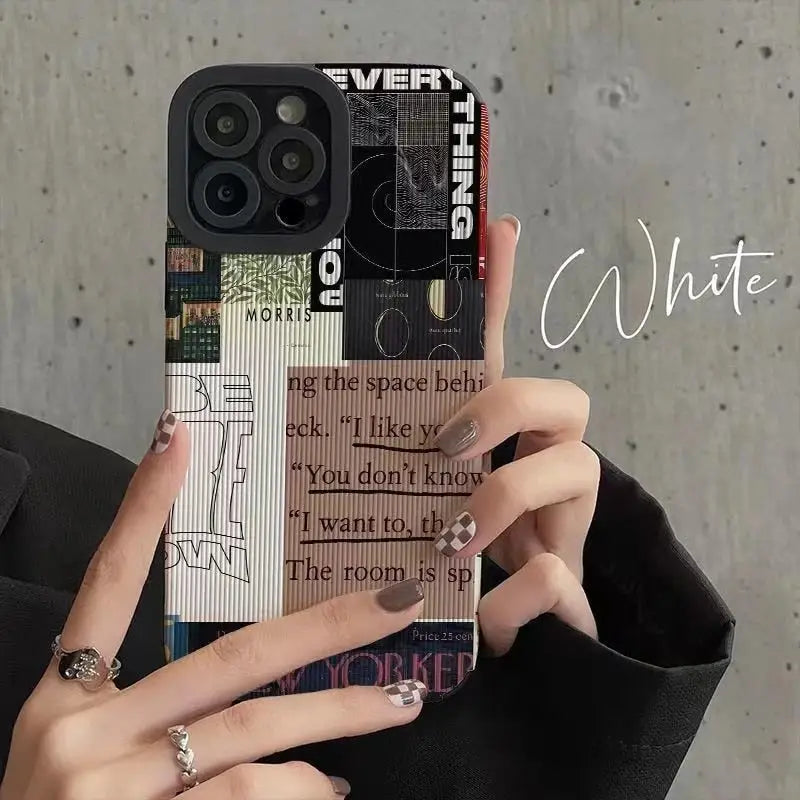 EVERY
THING
IS
YOU
MORRIS
White
BE
ng the space behi
eck. "I like yo
"You don't know
"I want to, th
The room is sp
OW
Price 25 cen
EW YORKER